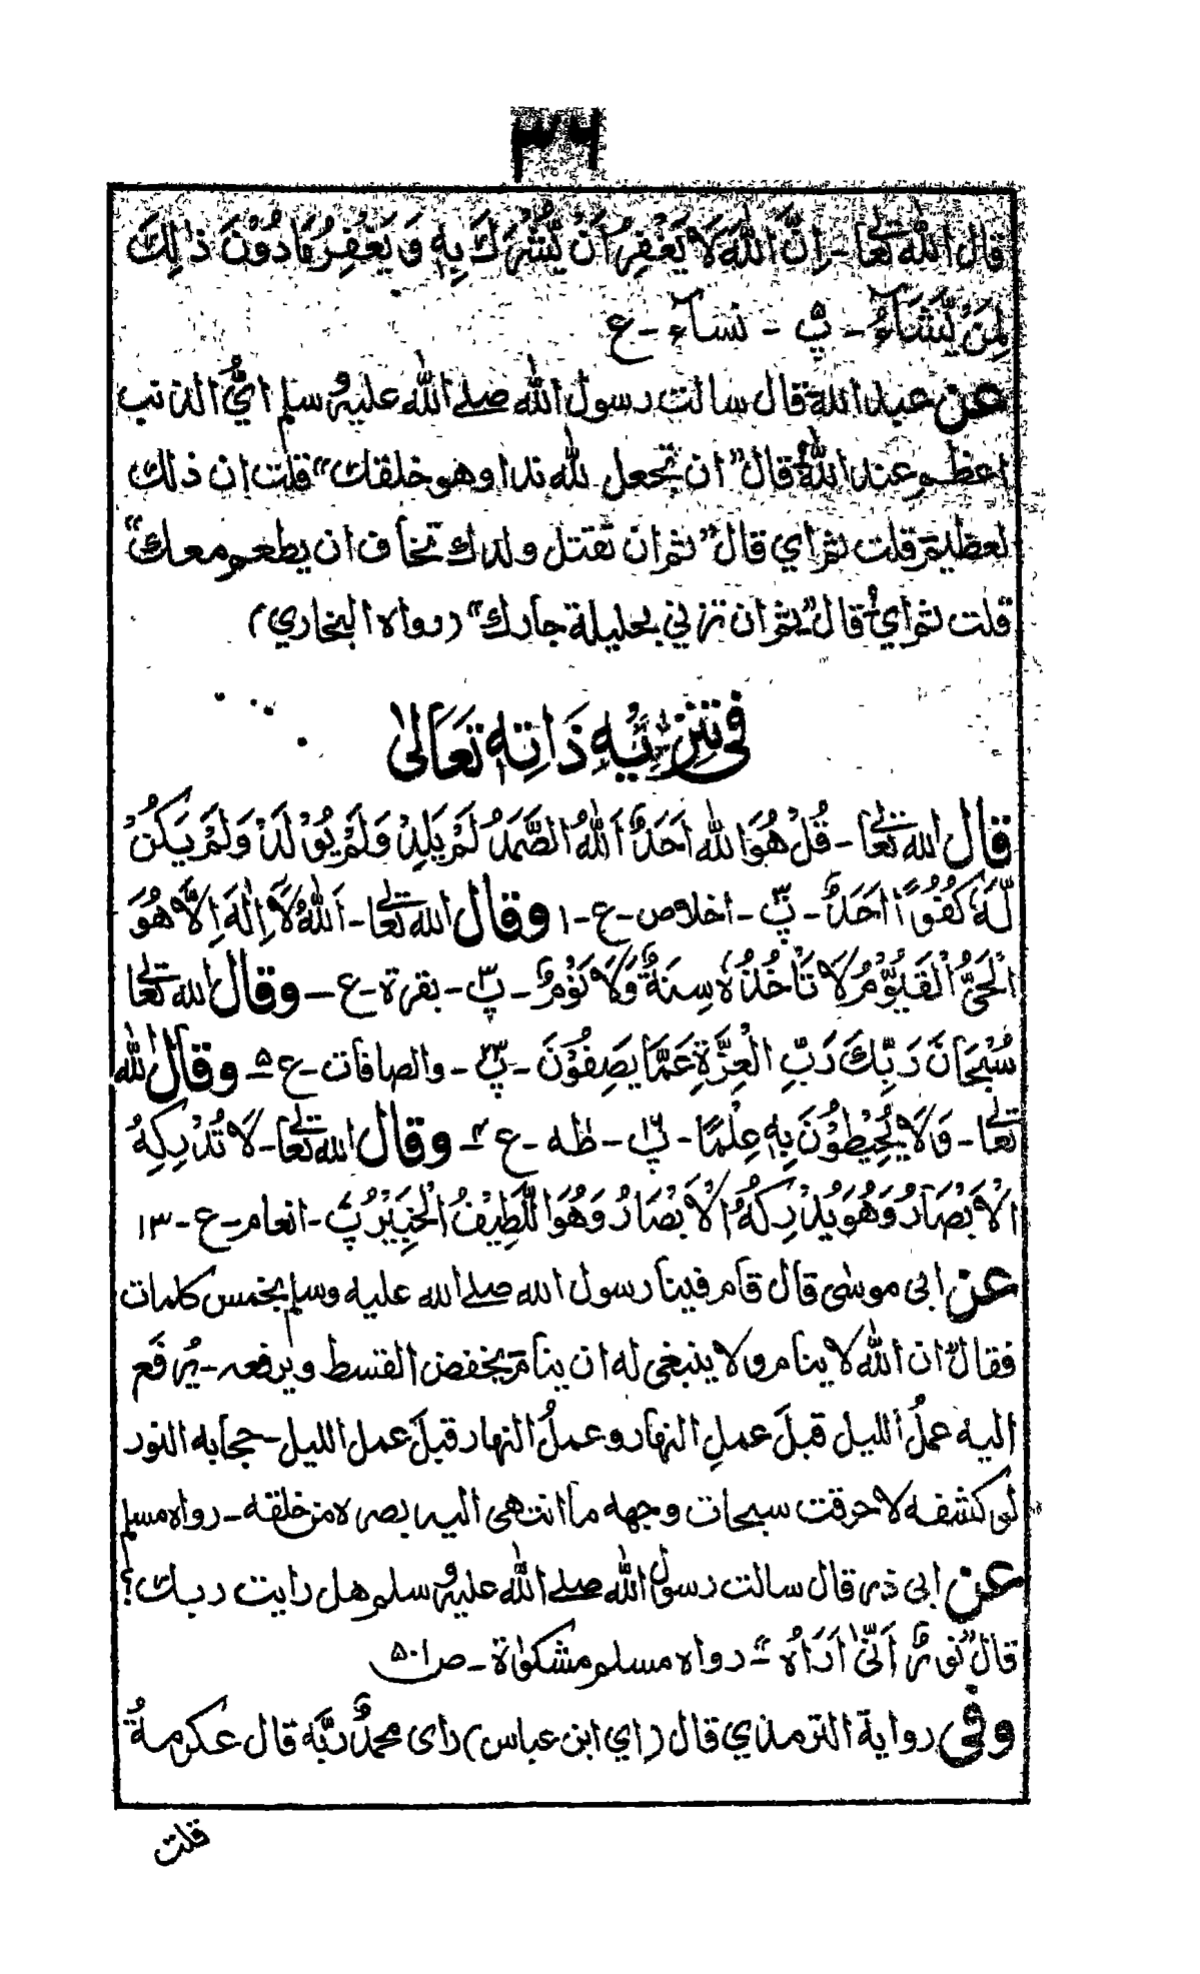 ٣٦
قال الله تعا - اِنَّ اللهَ لَا يَغْفِرُ اَنْ يُّشْرَكَ بِهٖ وَ يَغْفِرُ مَا دُوْنَ ذٰلِكَ
لِمَنْ يَّشَآءُ - پ ۵ - نسآء - ع
عن عبد الله قال سالت رسول الله صلے الله علیہ و سلم ايُّ الذنب
اعظم عند الله قال "ان تجعل لله ندا وهو خلقك" قلت ان ذلك
لعظيم قلت ثم اي قال "ثم ان تقتل ولدك تخاف ان يطعم معك"
قلت ثم اي قال "ثم ان تزني بحليلة جارك" (رواه البخاري)
فى تَنْزِيْهِ ذَاتِهٖ تَعَالىٰ
قال الله تعالے - قُلْ هُوَ الله اَحَدٌ اَللهُ الصَّمَدُ لَمْ يَلِدْ وَلَمْ يُوْلَدْ وَلَمْ يَكُنْ
لَّهٗ كُفُوًا اَحَدٌ - پ ٣٠ - اخلاص - ع - ١ وقال الله تعالے - اَللهُ لَا اِلٰهَ اِلَّا هُوَ
الْحَىُّ الْقَيُّوْمُ لَا تَاْخُذُهٗ سِنَةٌ وَّلَا نَوْمٌ - پ ٣ - بقرة - ع - وقال الله تعالے
سُبْحَانَ رَبِّكَ رَبِّ الْعِزَّةِ عَمَّا يَصِفُوْنَ - پ ٢٣ - والصافات - ع ۵ - وقال الله
تعالے - وَلَا يُحِيْطُوْنَ بِهٖ عِلْمًا - پ ١٦ - طٰه - ع - وقال الله تعالے - لَا تُدْرِكِهُ
الْاَبْصَارُ وَهُوَ يُدْرِكُ الْاَبْصَارُ وَهُوَ اللَّطِيْفُ الْخَبِيْرُ پ - انعام - ع - ١٣
عن ابى موسٰى قال قام فينا رسول الله صلے الله عليه وسلم بخمس كلمات
فقال "ان الله لا ينام ولا ينبغى له ان ينام يخفض القسط ويرفعه - يُرفَع
اليه عملُ الليل قبلَ عملِ النهار وعملُ النهار قبلَ عمل الليل - حجابه النور
لو كشفه لاحرقت سبحات وجهه ما انتهى اليه بصره من خلقه - رواه مسلم
عن ابى ذر قال سالت رسول الله صلے الله عليه و سلم هل رايت ربك؟
قال "نورٌ اَنّىٰ اَرَاهُ" رواه مسلم مشكوٰة - ص ۵٠١
وفى رواية الترمذي قال (اي ابن عباس) راى محمدٌ ربَّه قال عكرمةُ
قلت